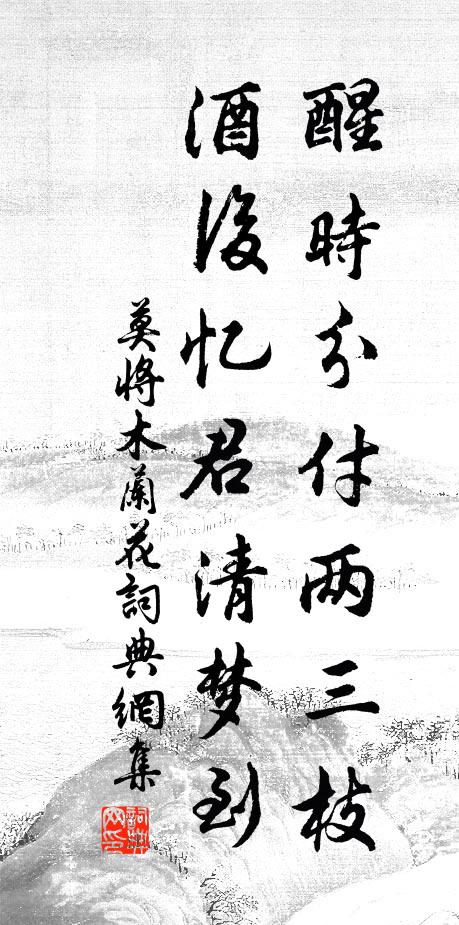 醒時分付两三枝
酒後忆君清梦到
莫將木蘭花詞典網集